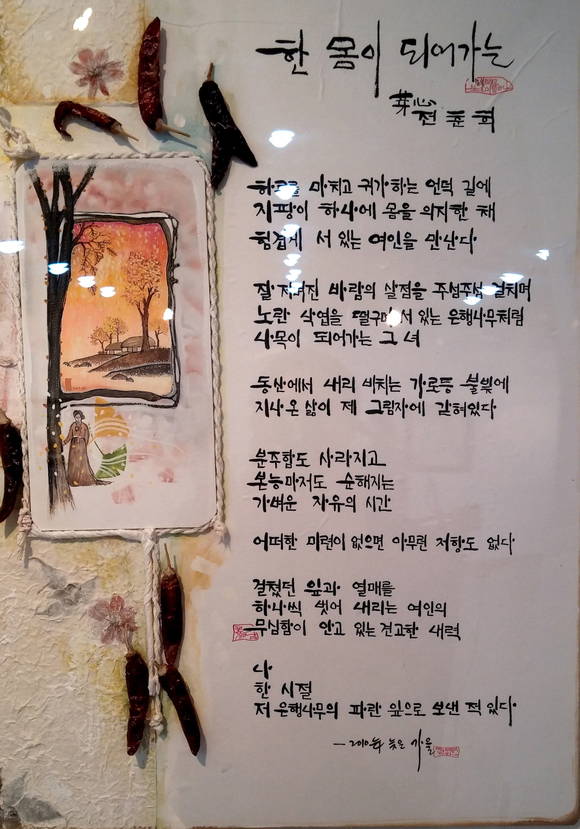 한 몸이 되어가는
芽心 전 춘 희
하루를 마치고 귀가하는 언덕 길에
지팡이 하나에 몸을 의지한 채
힘겹게 서 있는 여인을 만난다
잘 저며진 바람의 살점을 주섬주섬 걸치며
노란 낙엽을 떨구며 서 있는 은행나무처럼
나목이 되어가는 그 녀
동산에서 내리 비치는 가로등 불빛에
지나온 삶이 제 그림자에 갇혀있다
분주함도 사라지고
본능마저도 순해지는
가벼운 자유의 시간
어떠한 미련이 없으면 아무런 저항도 없다
걸쳤던 잎과 열매를
하나씩 벗어 내리는 여인의
무심함이 안고 있는 견고한 내력
나
한 시절
저 은행나무의 파란 잎으로 보낸 적 있다
늦은 가을